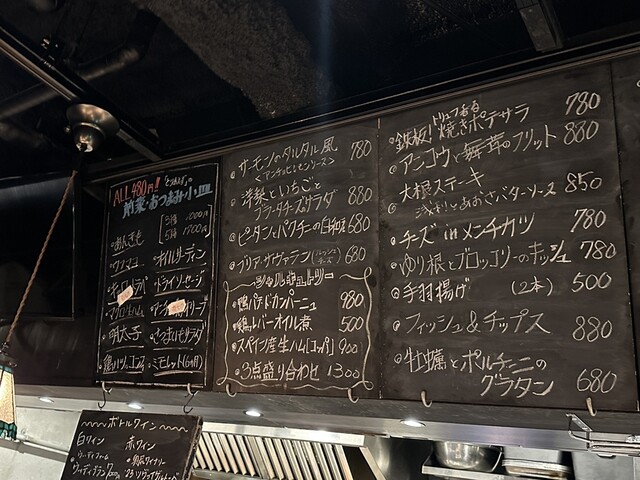 ALL 480円!!
前菜・おつまみ小皿
3種 1000円
5種 1500円
・あんきも
・オイルサーディン
・ドライソーセージ
・明太子
・さつまいもサラダ
・ミモレット(6ヶ月)
・サーモンのタルタル風 780
<アンチョビレモンソース>
・洋梨といちごと
ブラータチーズサラダ 880
・ピータンとパクチーの白和え 680
・ブリア・サヴァラン 680
シャルキュトリー
・鴨パテドカンパーニュ 980
・鶏レバーオイル煮 500
・スペイン産生ハム[コッパ] 900
・3点盛り合わせ 1300
トリュフ香る
・鉄板!焼きポテサラ 780
・アンコウと舞茸のフリット 880
・大根ステーキ
浅利とあおさバターソース 850
・チーズ inメンチカツ 780
・ゆり根とブロッコリーのキッシュ 780
・手羽揚げ (2本) 500
・フィッシュ&チップス 880
・牡蠣とポルチーニの
グラタン 680
ボトルワイン
白ワイン 赤ワイン